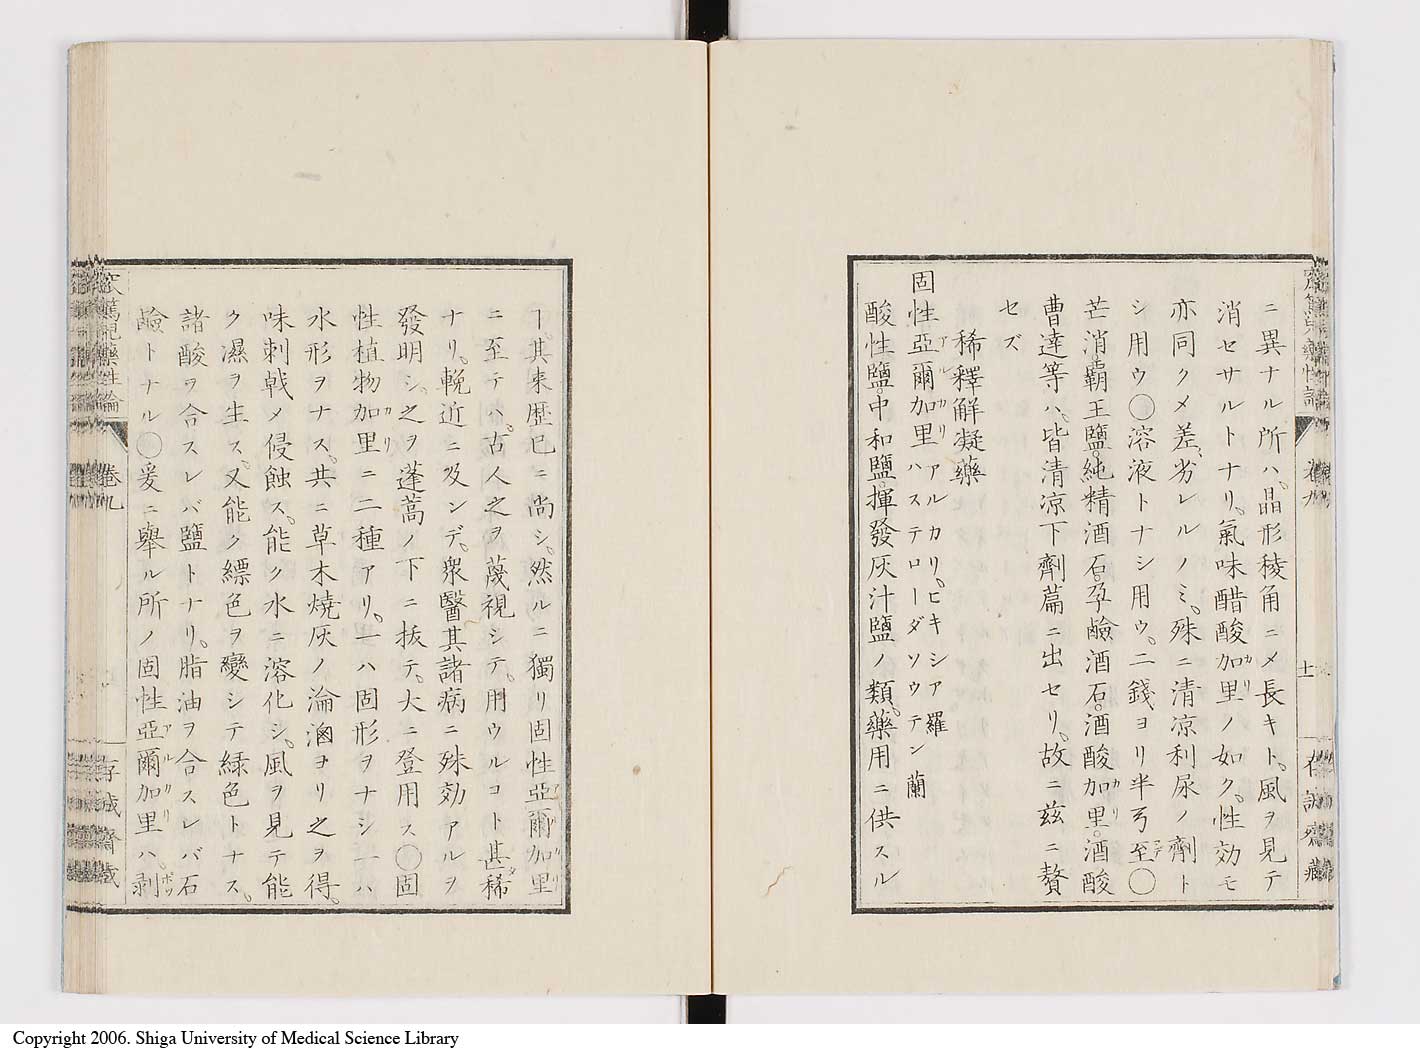 ニ異ナル所ハ。晶形稜角ニメ長キト。風ヲ見テ
消セサルトナリ。氣味醋酸加里ノ如ク。性効モ
亦同クメ差劣レルノミ。殊ニ清涼利尿ノ劑ト
シ用ウ〇溶液トナシ用ウ。二錢ヨリ半弓至〇
芒消。覇王鹽。純精酒石。孕鹼酒石。酒酸加里。酒酸
曹達等ハ。皆清涼下劑篇ニ出セリ。故ニ茲ニ贅
セズ
稀釋解凝藥
固性亞爾加里 アルカリ。ヒキシア 羅
ハステローダソウテン 蘭
酸性鹽。中和鹽。揮發灰汁鹽ノ類。藥用ニ供スル
ヿ。其来歴已ニ尚シ。然ルニ獨リ固性亞爾加里
ニ至テハ。古人之ヲ蔑視シテ。用ウルコト甚稀
ナリ。輓近ニ及ンデ。衆醫其諸病ニ殊効アルヲ
發明シ。之ヲ蓬蒿ノ下ニ抜テ。大ニ登用ス〇固
性植物加里ニ二種アリ。一ハ固形ヲナシ一ハ
水形ヲナス。共ニ草木燒灰ノ淪滷ヨリ之ヲ得。
味刺戟メ侵蝕ス。能ク水ニ溶化シ。風ヲ見テ能
ク濕ヲ生ス。又能ク縹色ヲ變シテ緑色トナス。
諸酸ヲ合スレバ鹽トナリ。脂油ヲ合スレバ石
鹼トナル〇爰ニ舉ル所ノ固性亞爾加里ハ。剥
卷九
存誠齋藏
Copyright 2006. Shiga University of Medical Science Library